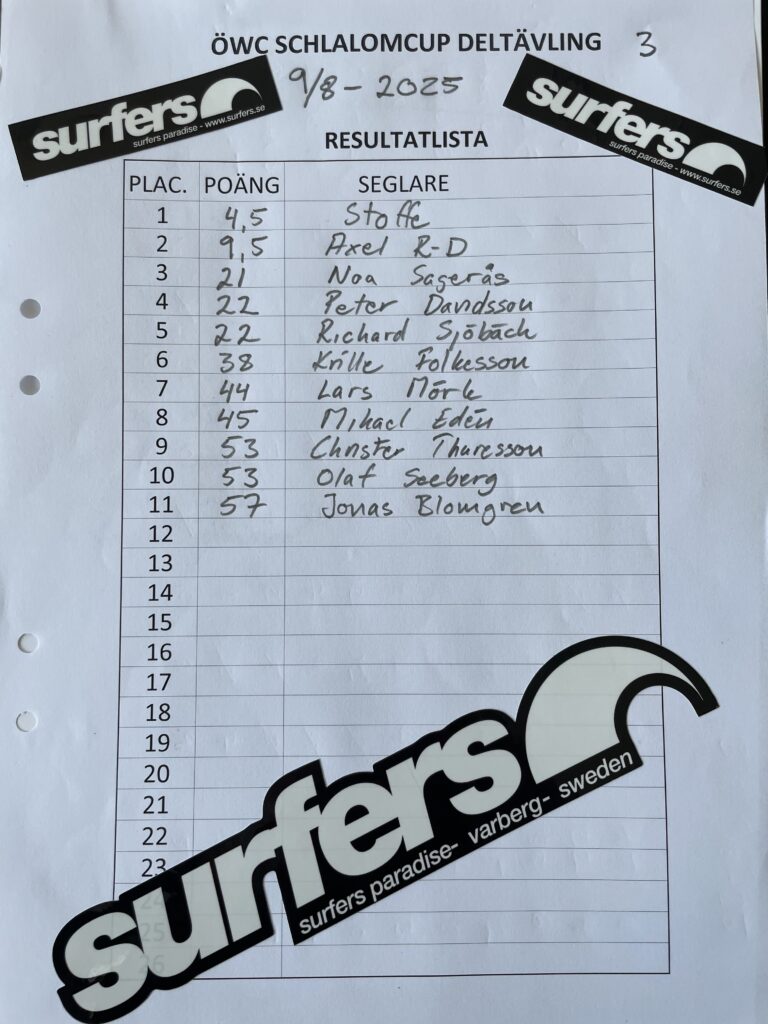 ÖWC SCHLALOMCUP DELTÄVLING 3
9/8 - 2025
surfers
surfers paradise - www.surfers.se
surfers
surfers paradise - www.surfers.se
RESULTATLISTA
PLAC. POÄNG SEGLARE
1 4,5 Stoffe
2 9,5 Axel R-D
3 21 Noa Sagerås
4 22 Peter Davidsson
5 22 Richard Sjöbäck
6 38 Krille Folkesson
7 44 Lars Mörk
8 45 Mikael Edén
9 53 Christer Thuresson
10 53 Olaf Seeberg
11 57 Jonas Blomgren
12
13
14
15
16
17
18
19
20
21
22
23
24
25
26
surfers
surfers paradise- varberg- sweden